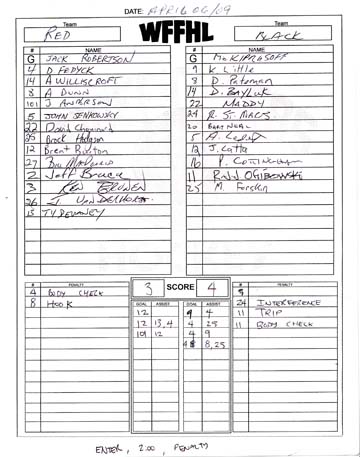 DATE: APRIL 06/09
Team
RED
WFFHL
Team
BLACK
# NAME
G JACK ROBERTSON
4 D FEDYCK
14 A WILLSCROFT
8 A DUNN
101 J ANDERSON
5 JOHN SENKOWSKY
22 David
Brock Hodgson
12 Brent Buxton
27 Bill
2 Jeff Bruce
3 KEN BROWEN
26 J. VANDELHORST
15 TY DEVANEY
# NAME
G McKIPRASOFF
9 K Little
8 D. Pateman
14 D. BAYLUK
22 MADDY
24 R. ST. MARS
20 BART NEAL
5 A.
12 J. Latta
16 P. COTTINGHAM
11 RON OGIBOWSKI
25 M. Forskin
# PENALTY
4 BODY CHECK
8 HOOK
3 SCORE 4
GOAL ASSIST GOAL ASSIST
12 9 4
12 13,4 4 25
101 12 4 9
4 8,25
# PENALTY
24 INTERFERENCE
11 TRIP
11 BODY CHECK
ENTER, 2:00, PENALTY